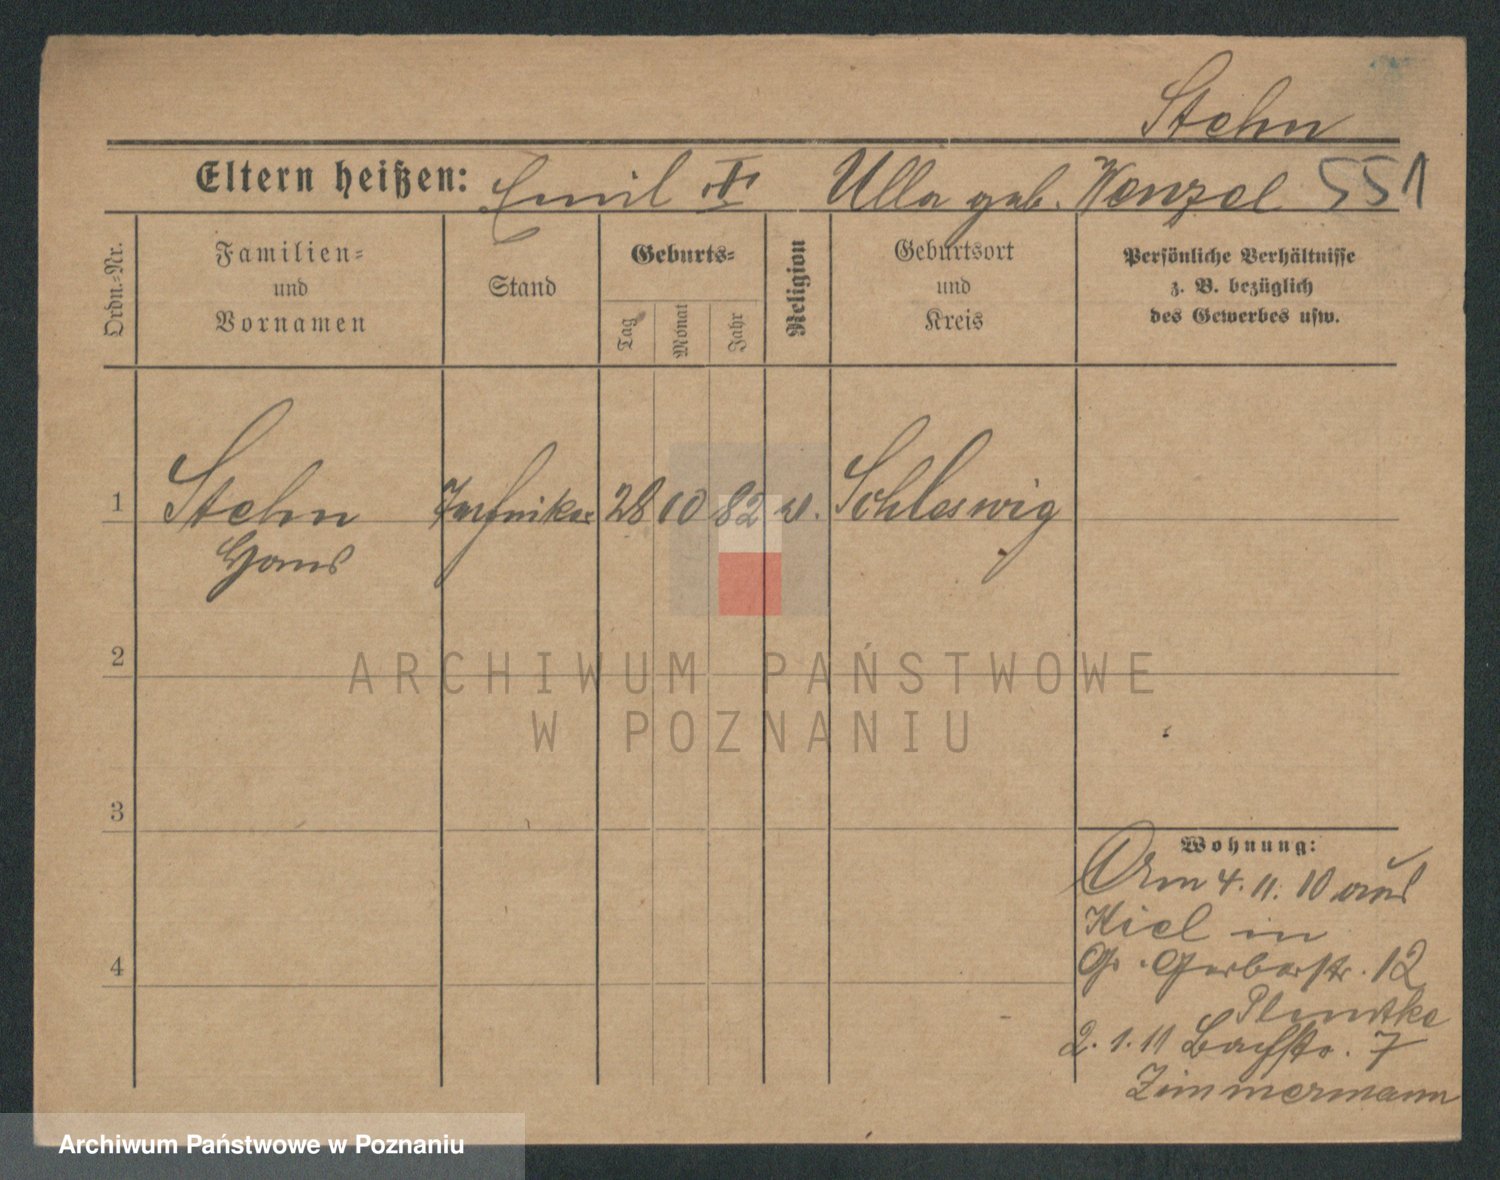 Stehn
Eltern heißen: Emil Ulla geb. Wenzel 551
Ordn.=Nr.
Familien=
und
Vornamen
Stand
Geburts=
Tag
Monat
Jahr
Religion
Geburtsort
und
Kreis
Persönliche Verhältnisse
z. B. bezüglich
des Gewerbes usw.
1 Stehn Techniker 28 10 82 Schleswig
Hans
2
3
4
Wohnung:
4. 11. 10 aus
Kiel in
Gr. Gerberstr. 12
2. 1. 11 Bachstr. 7
Zimmermann
ARCHIWUM PAŃSTWOWE
W POZNANIU
Archiwum Państwowe w Poznaniu